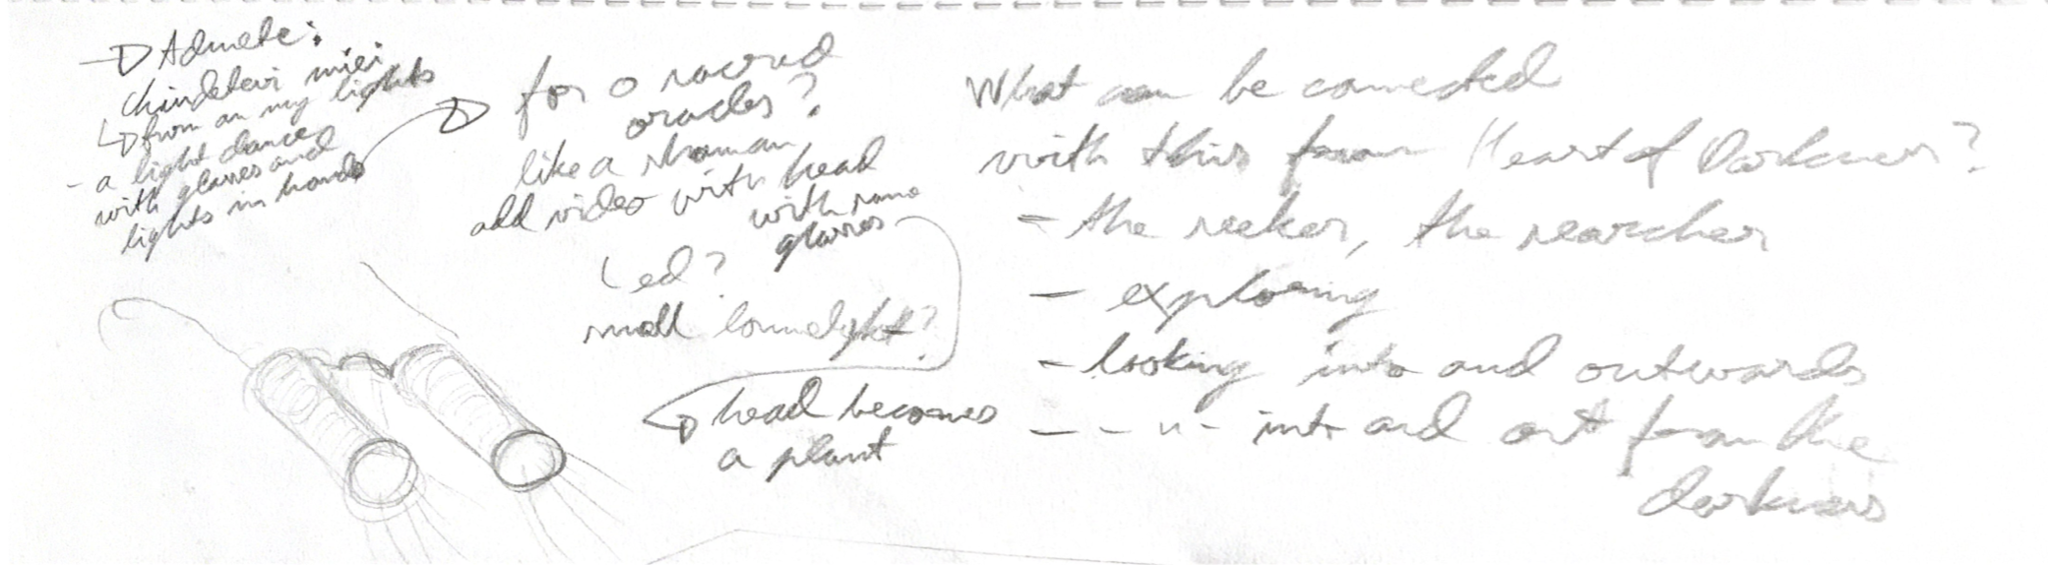 Admete:
chiedetevi miei
from on my lights
- a light dance
with glasses and
lights in hands
for a sacred
oracles?
like a shaman
add video with head
with same
glasses
Led?
small
head becomes
a plant
What can be connected
with this from Heart of Darkness?
- the seeker, the searcher
- exploring
- looking into and outwards
- - " - into and out from the
darkness